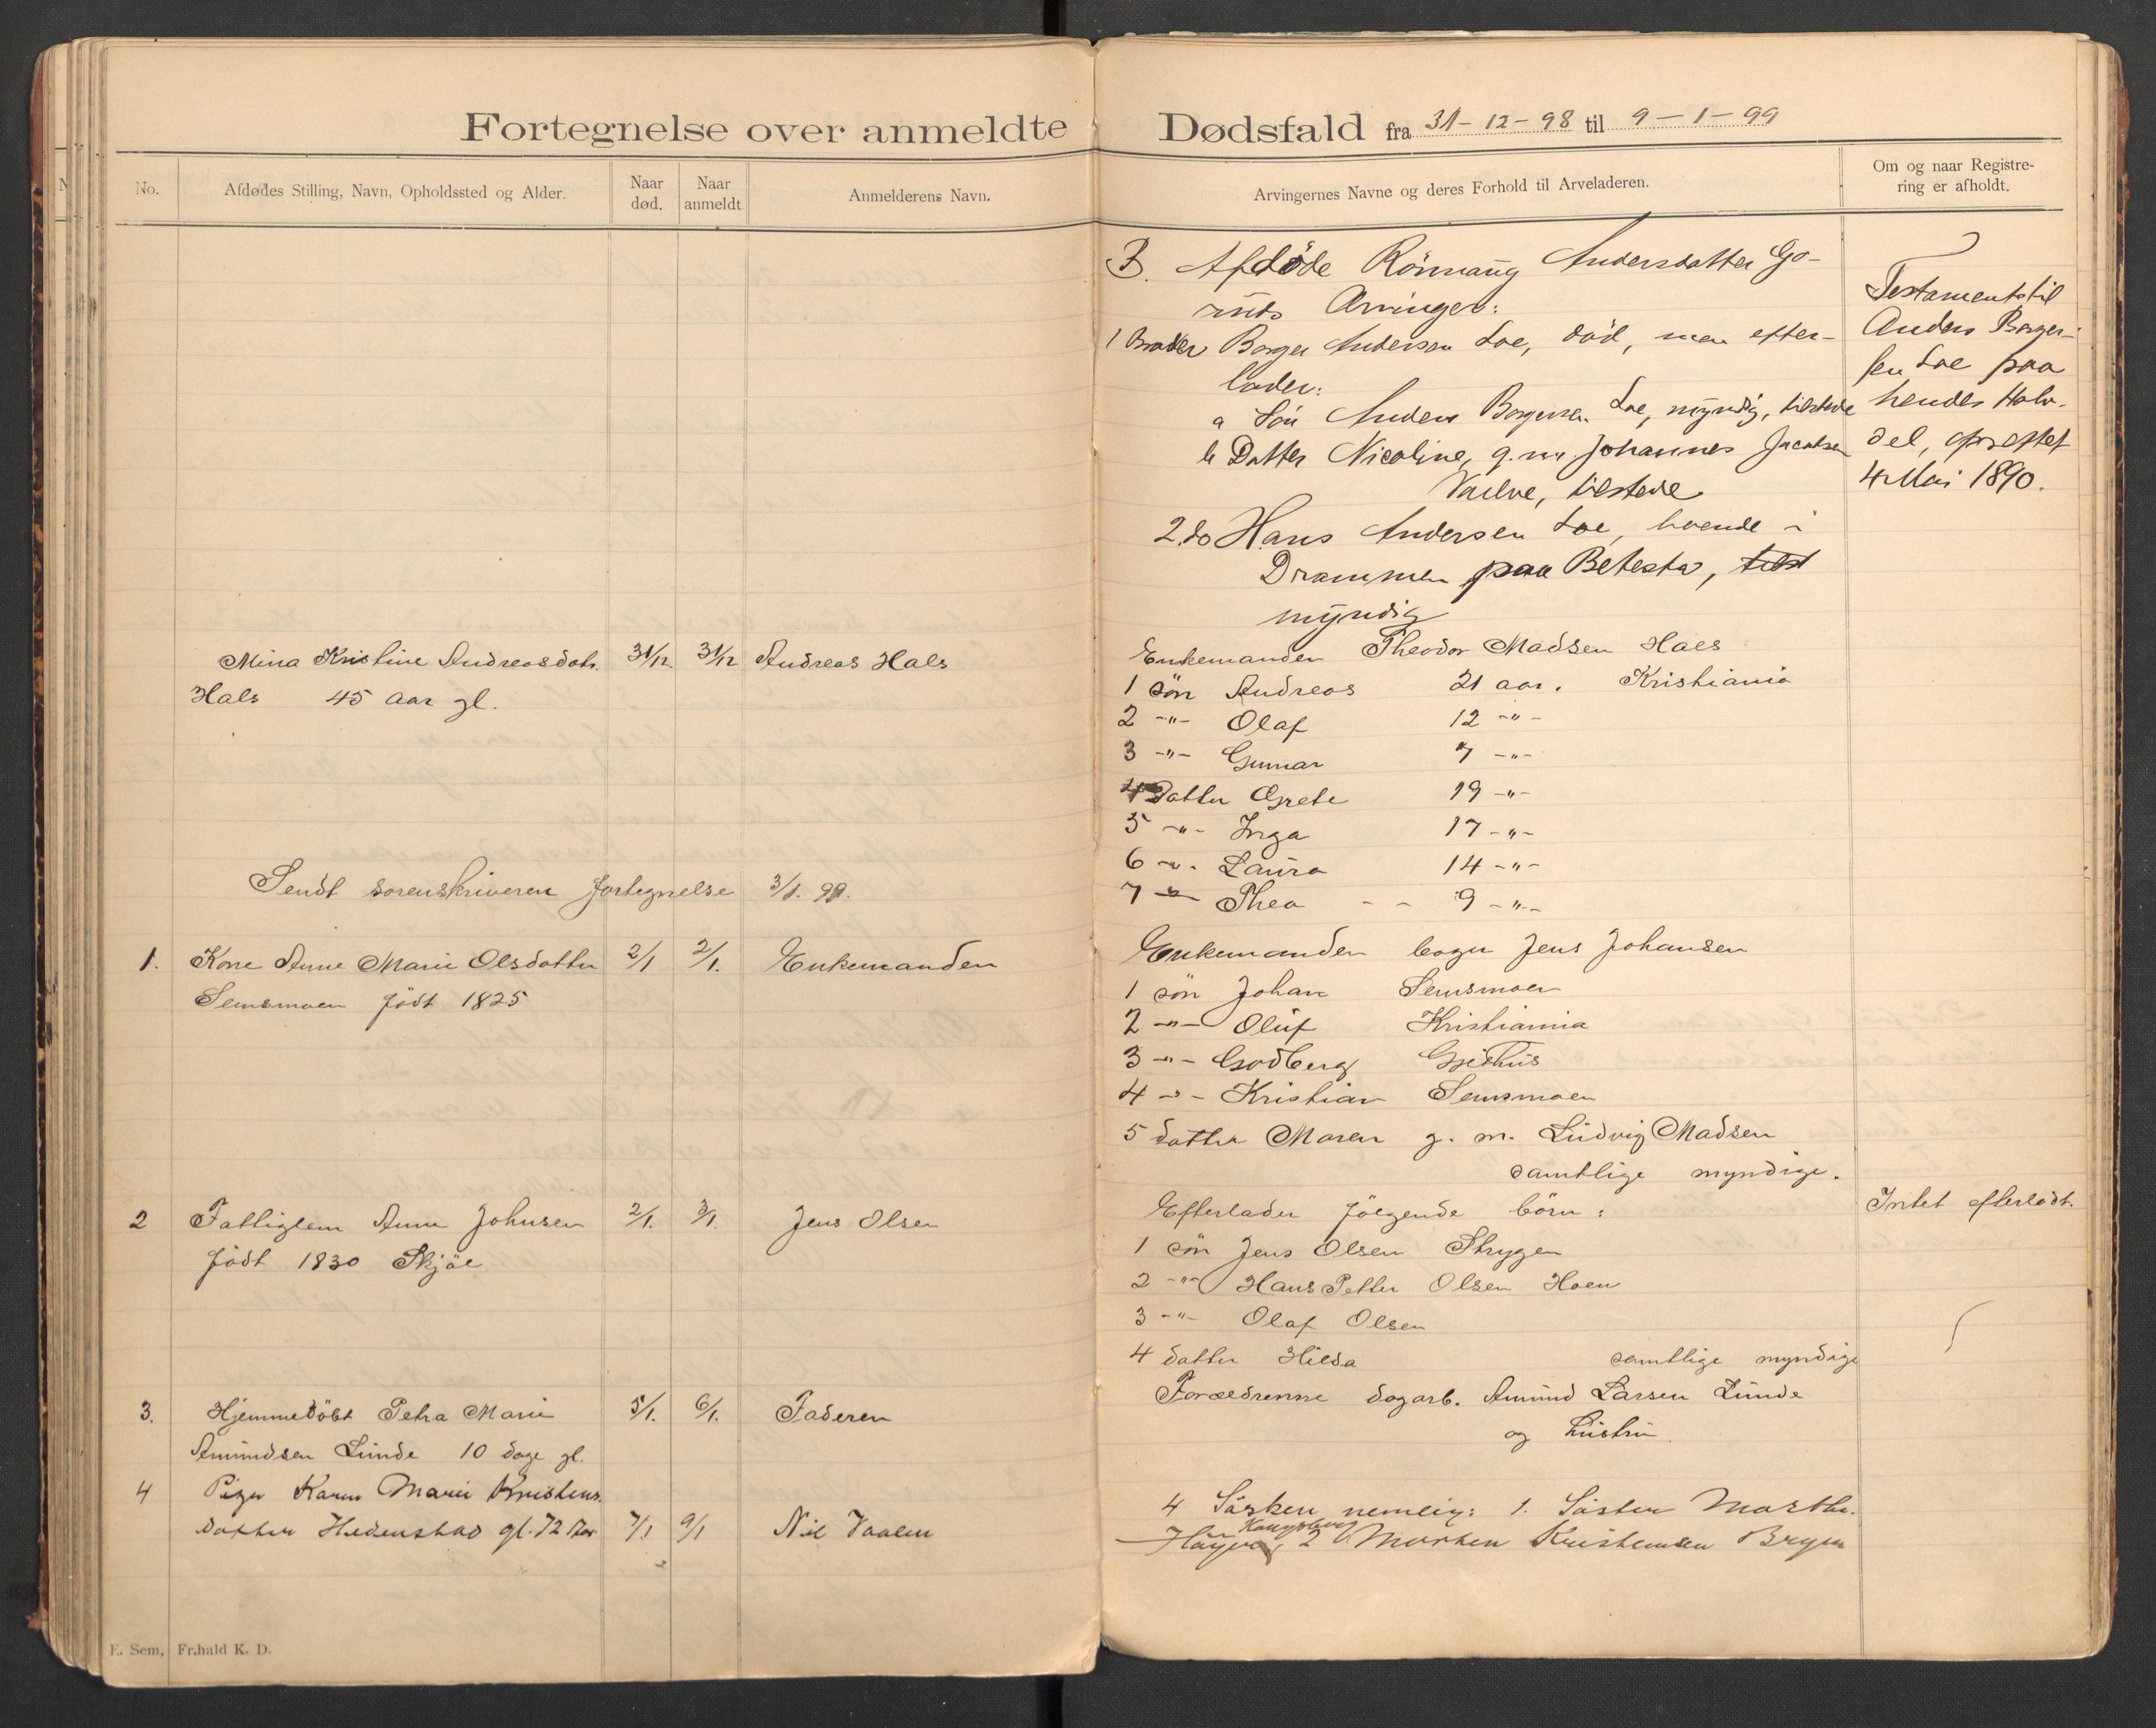 Fortegnelse over anmeldte Dødsfald fra 31-12-98 til 9-1-99
No. Afdødes Stilling, Navn, Opholdssted og Alder. Naar død. Naar anmeldt Anmelderens Navn. Arvingernes Navne og deres Forhold til Arveladeren. Om og naar Registrering er afholdt.
B. Afdöde Rönnaug Andersdatter Go-
ruds Arvinger:
1 Broder Borger Andersen Loe, död, men efter-
lader:
a Sön Anders Borgersen Loe, myndig, tilstede
b Datter Nicoline, g.m. Johannes Jacobsen
tilstede
2. do Hans Andersen Loe, boende i
Drammen paa Betesta, tilst
myndig
Testamente til
Anders Borger-
sen Loe paa
hendes Halv-
del, oprettet
4 Mai 1890.
Mina Kristine Andreasdatr. 31/12 31/12 Andreas Hals
Hals 45 aar gl.
Enkemanden Theodor Madsen Hals
1 sön Andreas 21 aar. Kristiania
2 -"- Olaf 12 -"-
3 -"- Gunnar 7 -"-
4 Datter Grete 19 -"-
5 -"- Inga 17 -"-
6 -"- Laura 14 -"-
7 -"- Thea - - 9 -"-
Sendt sorenskriveren fortegnelse 3/1. 99.
1. Kone Anne Marie Olsdatter 2/1 2/1. Enkemanden
Semsmoen födt 1825
Enkemanden Jens Johansen
1 sön Johan Semsmoen
2 -"- Oluf Kristiania
3 -"- Godberg Gjethus
4 -"- Kristian Semsmoen
5 datter Maren g. m. Ludvig Madsen
samtlige myndige.
2 Fattiglem Anne Johnsen 2/1. 3/1. Jens Olsen
födt 1830 Skjöl
Efterlader fölgende börn:
1 sön Jens Olsen Strygen
2 -"- Hans Petter Olsen Hoen
3 -"- Olaf Olsen
4 datter Hilda samtlige myndige
Intet efterladt.
3. Hjemmedöbt Petra Marie 5/1. 6/1. Faderen
Amundsen Lunde 10 dage gl.
Forældrene dagarb. Amund Larsen Lunde
og hustru.
4 Pige Karen Marie Kristens-
datter Hedenstad gl. 72 Aar 7/1 9/1 Nil Vaalen
4 Sösken nemlig: 1. Söster Marthe
Kongsberg
2 Morten Kristensen Brygen
E. Sem, Fr.hald K. D.